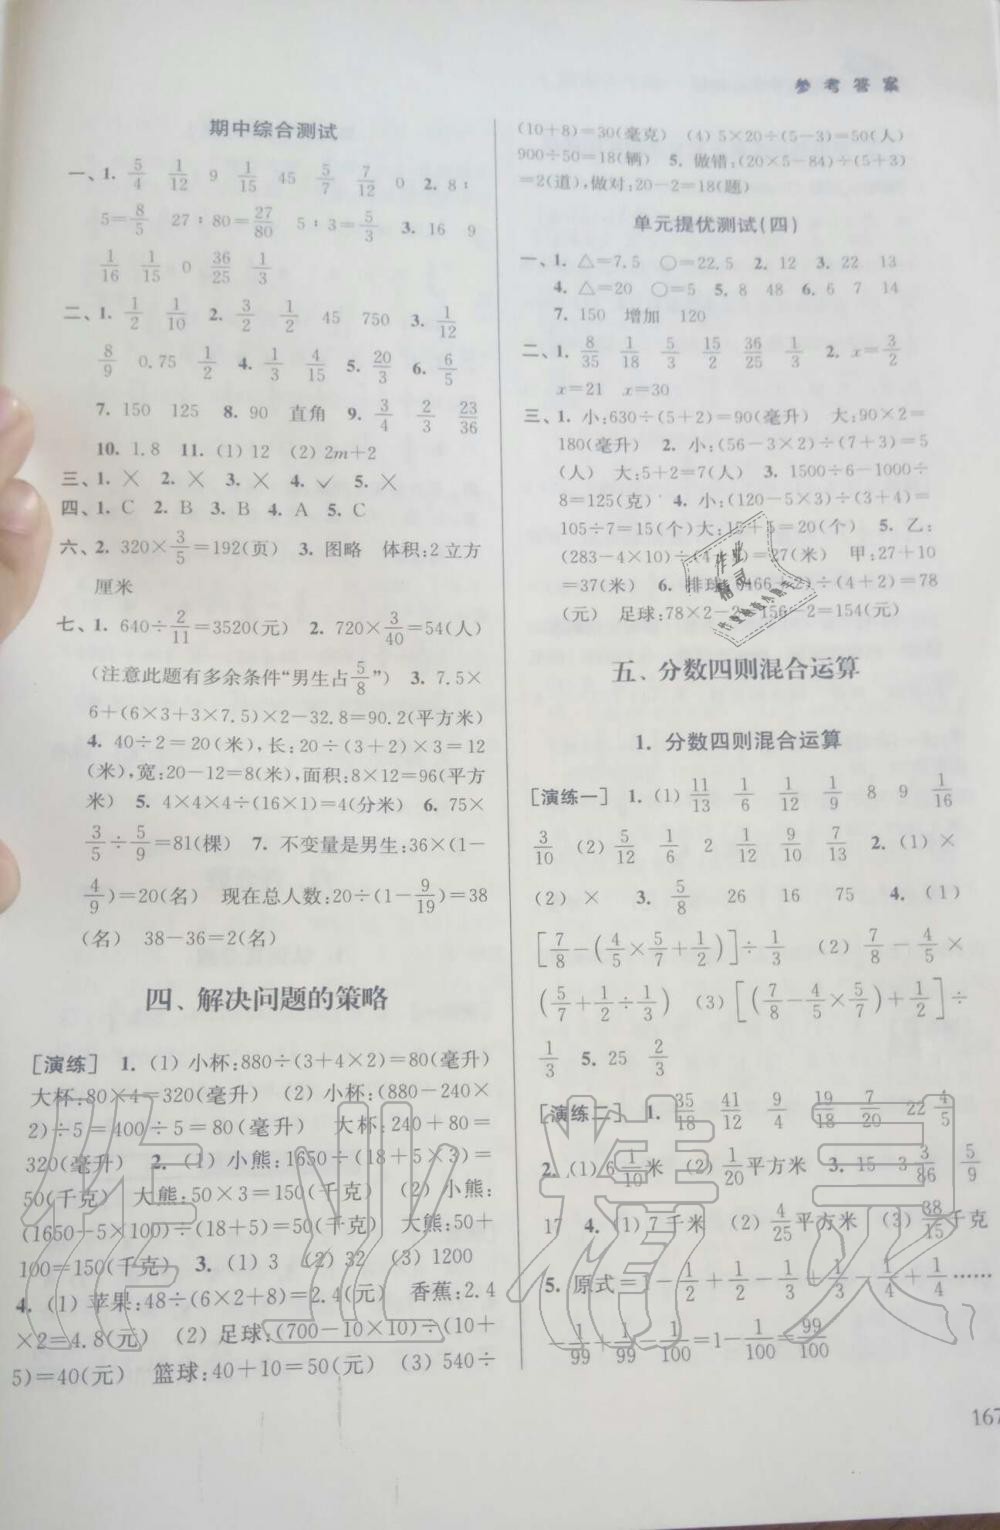 参考答案
期中综合测试
一、1. 5/4 1/12 9 1/15 45 5/7 7/12 0 2. 8∶
5=8/5 27∶80=27/80 5∶3=5/3 3. 16 9
1/16 1/15 0 36/25 1/3
二、1. 1/2 1/10 2. 3/2 1/2 45 750 3. 1/12
8/9 0.75 1/2 4. 1/3 4/15 5. 20/3 6. 6/5
7. 150 125 8. 90 直角 9. 3/4 2/3 23/36
10. 1.8 11. (1) 12 (2) 2m+2
三、1. × 2. × 3. × 4. ✓ 5. ×
四、1. C 2. B 3. B 4. A 5. C
六、2. 320×3/5=192(页) 3. 图略 体积:2立方
厘米
七、1. 640÷2/11=3520(元) 2. 720×3/40=54(人)
(注意此题有多余条件“男生占5/8”) 3. 7.5×
6+(6×3+3×7.5)×2-32.8=90.2(平方米)
4. 40÷2=20(米),长:20÷(3+2)×3=12
(米),宽:20-12=8(米),面积:8×12=96(平方
米) 5. 4×4×4÷(16×1)=4(分米) 6. 75×
3/5÷5/9=81(棵) 7. 不变量是男生:36×(1-
4/9)=20(名) 现在总人数:20÷(1-9/19)=38
(名) 38-36=2(名)
四、解决问题的策略
[演练] 1. (1) 小杯:880÷(3+4×2)=80(毫升)
大杯:80×4=320(毫升) (2) 小杯:(880-240×
2)÷5=400÷5=80(毫升) 大杯:240+80=
320(毫升) 2. (1) 小熊:1650÷(18+5×3)=
50(千克) 大熊:50×3=150(千克) (2) 小熊:
(1650-5×100)÷(18+5)=50(千克) 大熊:50+
100=150(千克) 3. (1) 3 (2) 32 (3) 1200
4. (1) 苹果:48÷(6×2+8)=2.4(元) 香蕉:2.4
×2=4.8(元) (2) 足球:(700-10×10)÷(10+
5)=40(元) 篮球:40+10=50(元) (3) 540÷
(10+8)=30(毫克) (4) 5×20÷(5-3)=50(人)
900÷50=18(辆) 5. 做错:(20×5-84)÷(5+3)
=2(道),做对:20-2=18(题)
单元提优测试(四)
一、1. △=7.5 ○=22.5 2. 12 3. 22 13
4. △=20 ○=5 5. 8 48 6. 6 7 14
7. 150 增加 120
二、1. 8/35 1/18 5/3 15/2 36/25 1/3 2. x=3/2
x=21 x=30
三、1. 小:630÷(5+2)=90(毫升) 大:90×2=
180(毫升) 2. 小:(56-3×2)÷(7+3)=5
(人) 大:5+2=7(人) 3. 1500÷6-1000÷
8=125(克) 4. 小:(120-5×3)÷(3+4)=
105÷7=15(个)大:15+5=20(个) 5. 乙:
(283-4×10)÷(4+ )=27(米) 甲:27+10
=37(米) 6. 排球:(466+2)÷(4+2)=78
(元) 足球:78×2-2=156-2=154(元)
作业
精灵
五、分数四则混合运算
1. 分数四则混合运算
[演练一] 1. (1) 11/13 1/6 1/12 1/9 8 9 1/16
3/10 (2) 5/12 1/6 2 1/12 9/10 7/13 2. (1) ×
(2) × 3. 5/8 26 16 75 4. (1)
[7/8-(4/5×5/7+1/2)]÷1/3 (2) 7/8-4/5×
(5/7+1/2÷1/3) (3) [(7/8-4/5×5/7)+1/2]÷
1/3 5. 25 2/3
[演练二] 1. 35/18 41/12 9/4 19/18 7/20 22 4/5
2. (1) 6 1/10米 (2) 1/20平方米 3. 15 3 3/86 5/9
17 4. (1) 7千米 (2) 4/25平方米 (3) 38/15千克
5. 原式=1-1/2+1/2-1/3+1/3-1/4+1/4……
-1/99+1/99-1/100=1-1/100=99/100
作业精灵
167